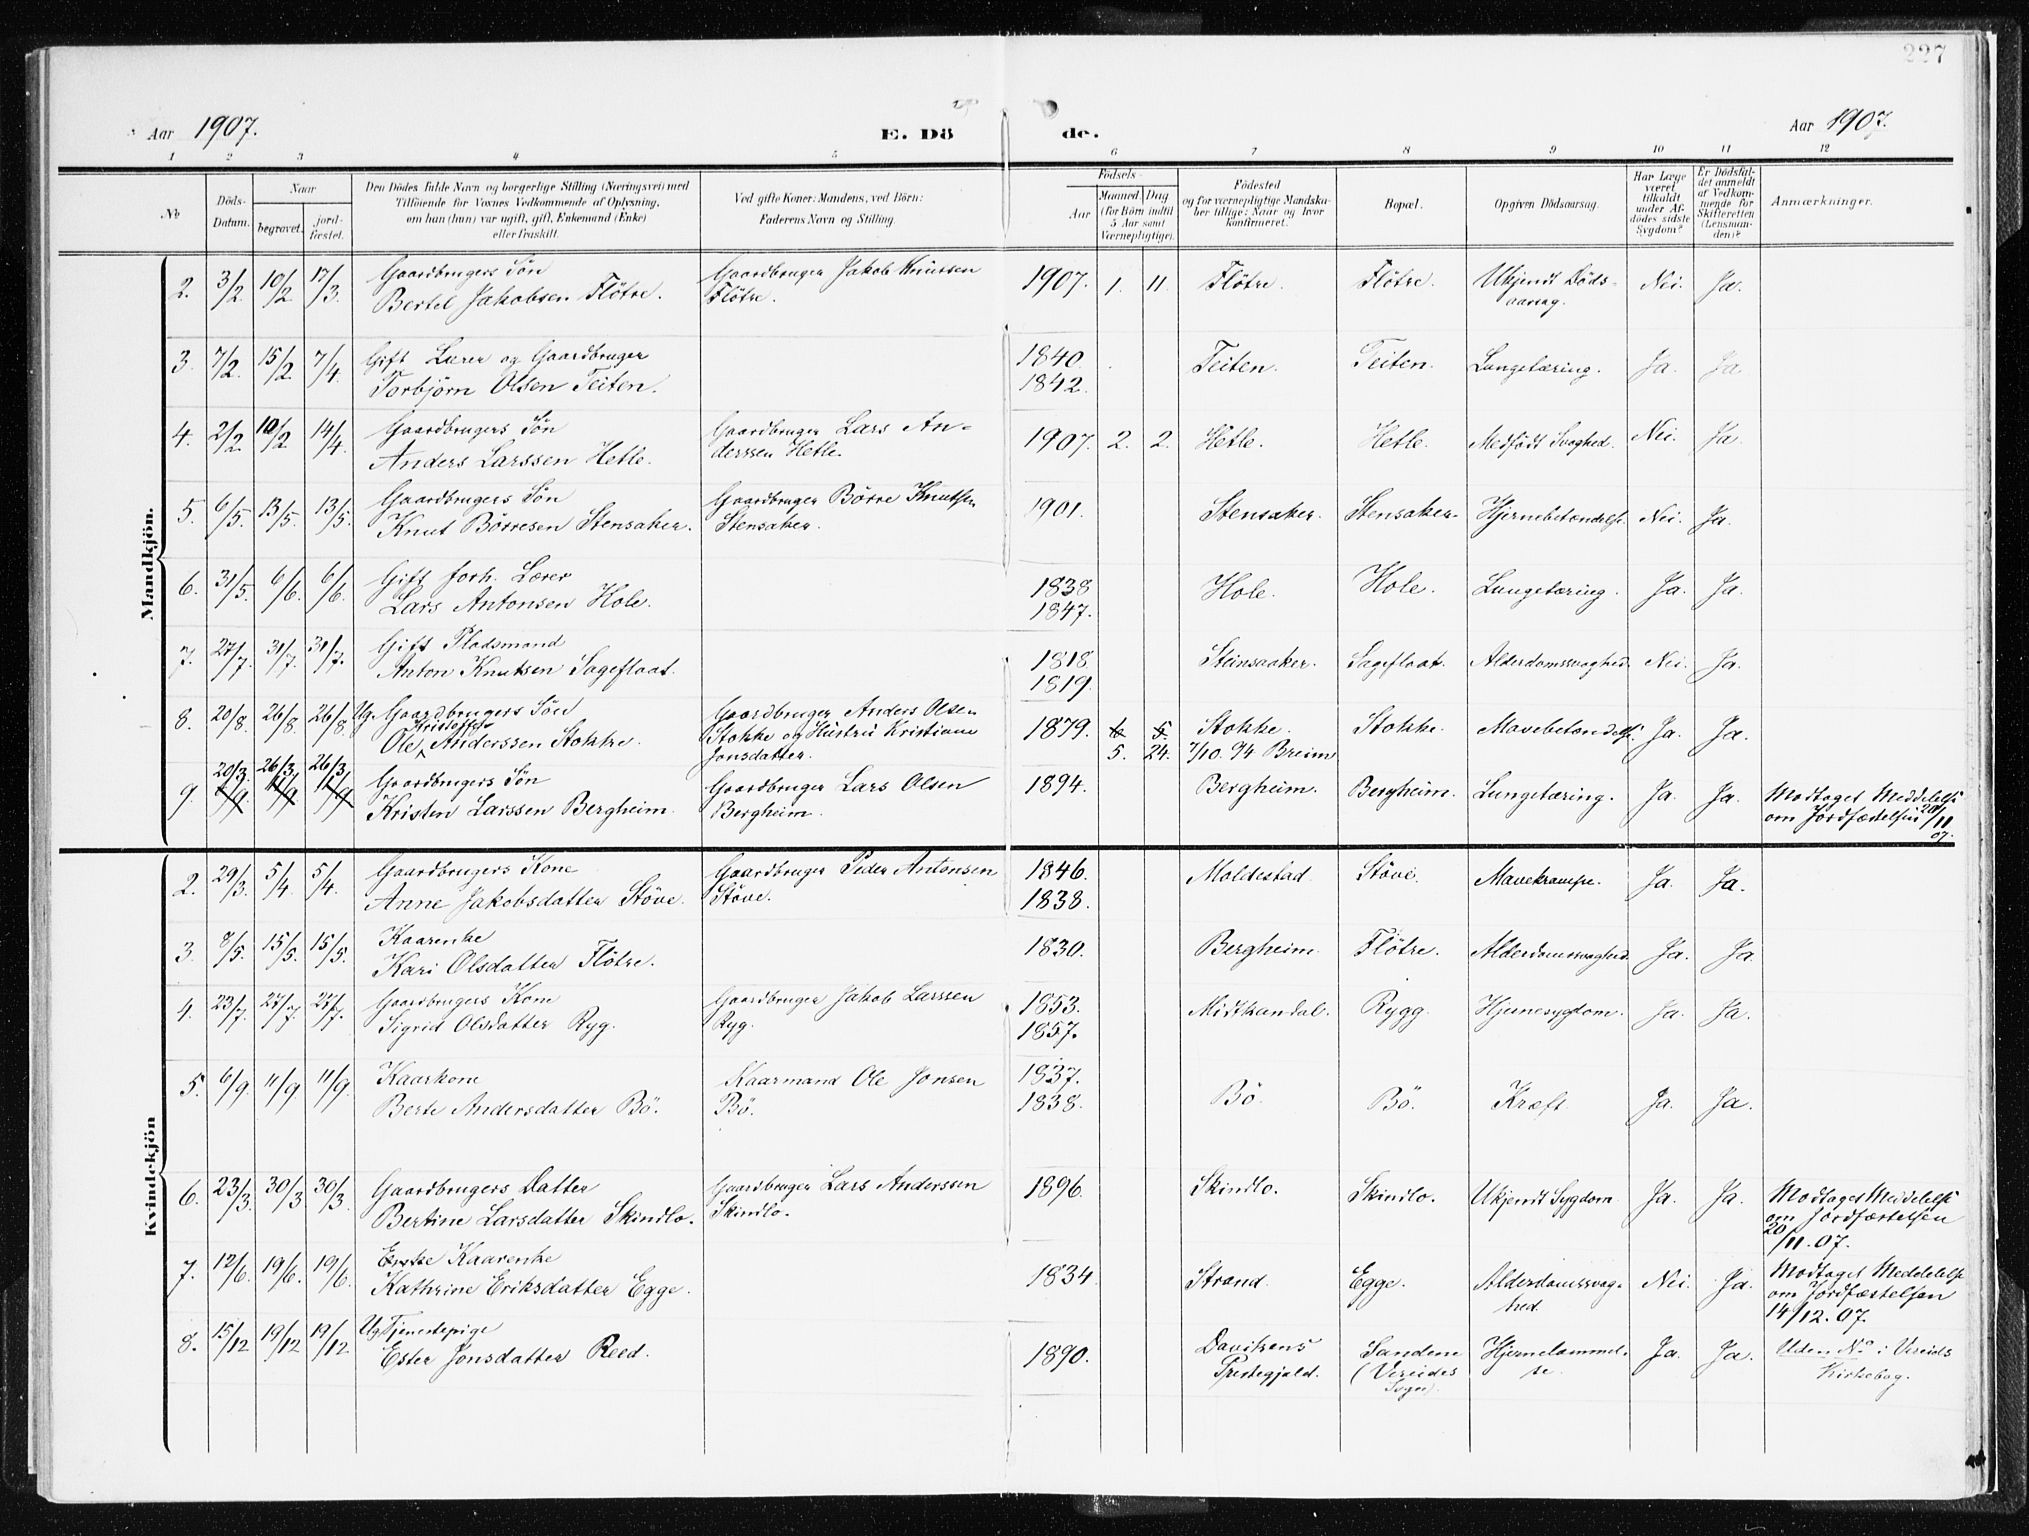 227
Aar 1907.
E. Dö de.
Aar 1907.
1 2 3 4 5 6 7 8 9 10 11 12
No
Döds-Datum.
Naar
begravet.
jord-fæstet.
Den Dödes fulde Navn og borgerlige Stilling (Næringsvei) med
Tilföiende for Voxnes Vedkommende af Oplysning,
om han (hun) var ugift, gift, Enkemand (Enke)
eller fraskilt.
Ved gifte Koner: Mandens, ved Börn:
Faderens Navn og Stilling.
Födsels-
Aar
Maaned Dag
(for Börn indtil
5 Aar samt
Værnepligtige).
Födested
og for værnepligtige Mandska-
ber tillige: Naar og hvor
konfirmeret.
Bopæl.
Opgiven Dödsaarsag.
Har Læge
været
tilkaldt
under Af-
dödes sidste
Sygdom?
Er Dödsfal-
det anmeldt
af Vedkom-
mende for
Skifteretten
(Lensman-
den)?
Anmærkninger.
Mandkjön.
2. 3/2 10/2 17/3 Gaardbrugers Sön Gaardbruger Jakob Knutsen 1907. 1. 11. Flötre. Flötre. Ukjendt Döds- Nei. Ja.
Bertel Jakobsen Flötre. Flötre. aarsag.
3. 7/2. 15/2. 7/4. Gift Lærer og Gaardbruger 1840. Teiten. Teiten. Lungetæring. Ja. Ja.
Torbjörn Olsen Teiten. 1842.
4. 2/2. 10/2 14/4. Gaardbrugers Sön Gaardbruger Lars An- 1907. 2. 2. Hetle. Hetle. Medfödt Svaghed. Nei. Ja.
Anders Larssen Hetle. derssen Hetle.
5. 6/5. 13/5. 13/5. Gaardbrugers Sön Gaardbruger Börre Knutsen 1901. Stensaker. Stensaker. Hjernebetændelse. Nei. Ja.
Knut Börresen Stensaker. Stensaker.
6. 31/5. 6/6. 6/6. Gift forh. Lærer 1838 Hole. Hole. Lungetæring. Ja. Ja.
Lars Antonsen Hole. 1847.
7. 27/7. 31/7. 31/7. Gift Pladsmand 1818. Steinsaaker. Sagefloat. Alderdomssvaghed. Nei. Ja.
Anton Knutsen Sagefloat. 1819.
8. 20/8. 26/8. 26/8. Ug. Gaardbrugers Sön Gaardbruger Anders Olsen 1879. 6 5. Stokke. Stokke. Mavebetændelse. Ja. Ja.
Kristoffer
Ole Anderssen Stokke. Stokke og Hustru Kristiane 5. 24. 7/10. 94 Breim
Jonsdatter.
20/3. 26/3. 26/3.
9. 11/9 11/9 Gaardbrugers Sön Gaardbruger Lars Olsen 1894. Bergheim. Bergheim. Lungetæring. Ja. Ja. Modtaget Meddelelse
Kristen Larssen Bergheim. Bergheim. om Jordfæstelsen 20/11 07.
Kvindekjön
2. 29/3. 5/4. 5/4. Gaardbrugers Kone Gaardbruger Peder Antonsen 1846. Moldestad. Stöve. Mavekrampe. Ja. Ja.
Anne Jakobsdatter Stöve. Stöve. 1838.
3. 8/5. 15/5. 15/5. Kaarenke 1830. Bergheim. Flötre. Alderdomssvaghed. Ja. Ja.
Kari Olsdatter Flötre.
4. 23/7. 27/7. 27/7. Gaardbrugers Kone Gaardbruger Jakob Larssen 1853. Midthandal. Rygg. Hjernesygdom. Ja. Ja.
Sigrid Olsdatter Ryg. Ryg. 1857.
5. 6/9. 11/9. 11/9. Kaarkone Kaarmand Ole Jonsen 1837. Bö. Bö. Kræft. Ja. Ja.
Berte Andersdatter Bö. Bö. 1838.
6. 23/3. 30/3 30/3. Gaardbrugers Datter Gaardbruger Lars Anderssen 1896. Skindlo. Skindlo. Ukjendt Sygdom. Ja. Ja. Modtaget Meddelelse
Bertine Larsdatter Skindlo. Skindlo. om Jordfæstelsen
20/11. 07.
7. 12/6. 19/6. 19/6. Enke Kaarenke 1834. Strand. Egge. Alderdomssvag- Nei. Ja. Modtaget Meddelelse
Kathrine Eriksdatter Egge. hed. om Jordfæstelsen
14/12. 07.
8. 15/12 19/12 19/12. Ug. Tjenestepige 1890. Davikens Sandene Hjernelammel- Ja. Ja. Uden No i Vereids
Ester Jonsdatter Reed. Prestegjæld. (Vereides se. Kirkebog.
Sogn).